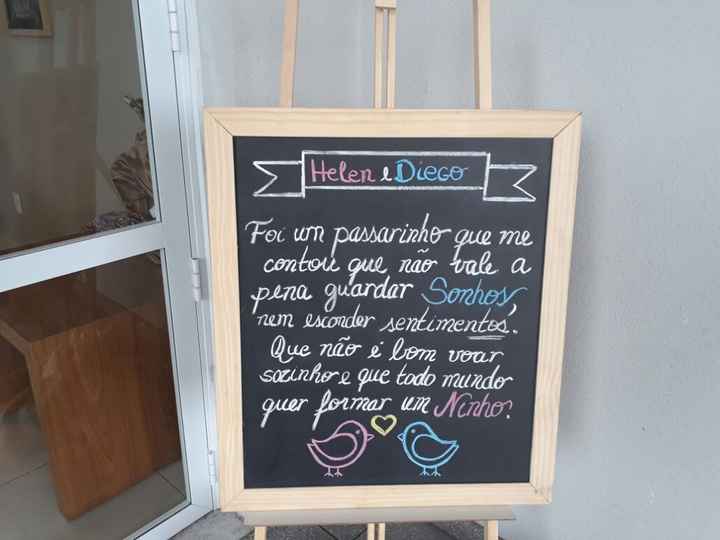 Helen e Diego
Foi um passarinho que me
contou que não vale a
pena guardar Sonhos,
nem esconder sentimentos!
Que não é bom voar
sozinho e que todo mundo
quer formar um Ninho!